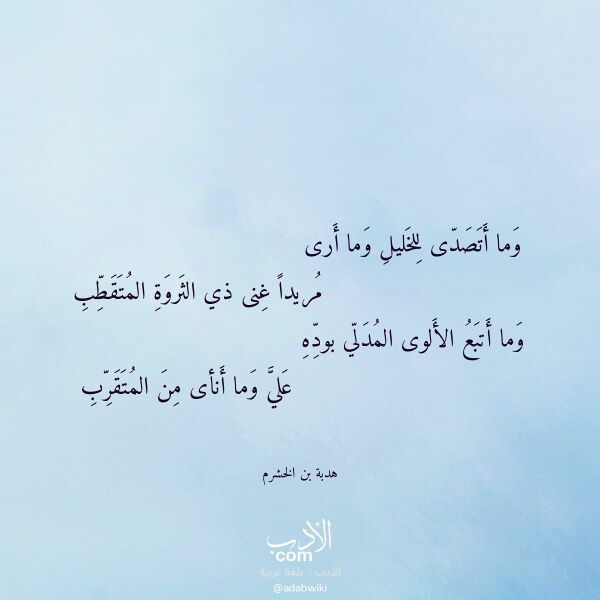 وَما أَتَصَدّى لِلخَليلِ وَما أَرى
مُريداً غِنى ذي الثَروَةِ المُتَقَطِّبِ
وَما أَتبَعُ الأَلوى المُدَلّي بودِّهِ
عَلَيَّ وَما أَنأى مِنَ المُتَقَرِّبِ
هدبة بن الخشرم
الأدب
com
الأدب .. بلغة عربية
@adabwiki